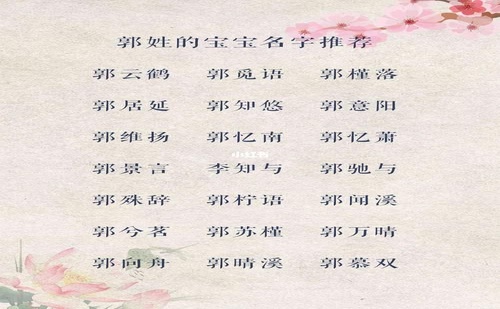 郭姓的宝宝名字推荐
郭云鹤 郭觅语 郭槿落
郭居延 郭知悠 郭意阳
郭维扬 郭忆南 郭忆萧
郭景言 李知与 郭驰与
郭殊辞 郭柠语 郭闻溪
郭兮茗 郭苏槿 郭万晴
郭向舟 郭晴溪 郭慕双